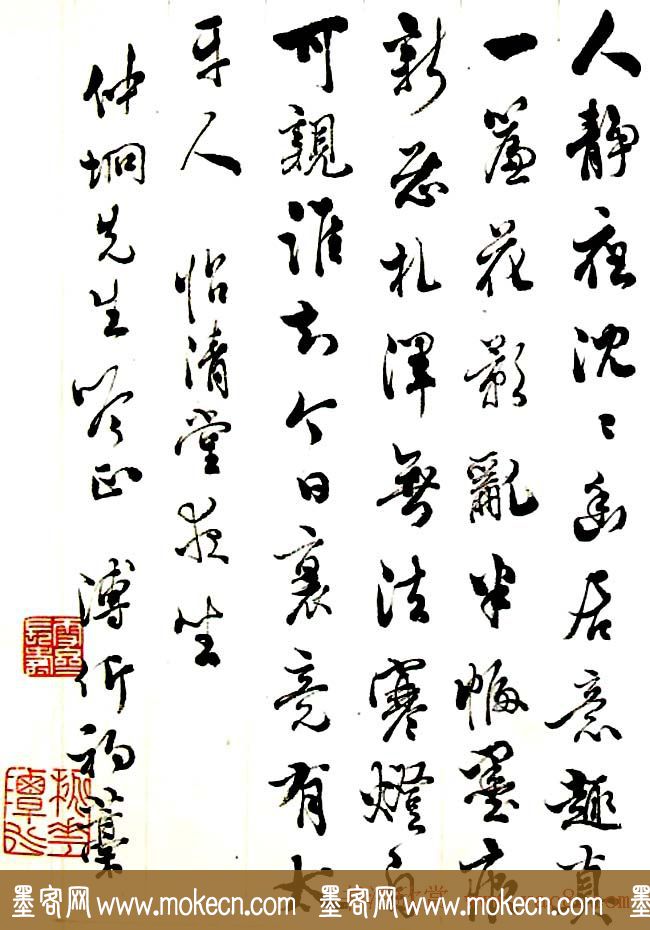 人靜夜沈〻幽居意趣真
一簾花影亂半幅墨痕
新惡札渾無法寒燈自
可親誰知今日裏竟有太
平人 怡清堂夜坐
仲坰先生吟正 溥伒初藁
墨客网 www.mokecn.com 墨客网 www.mokecn.com